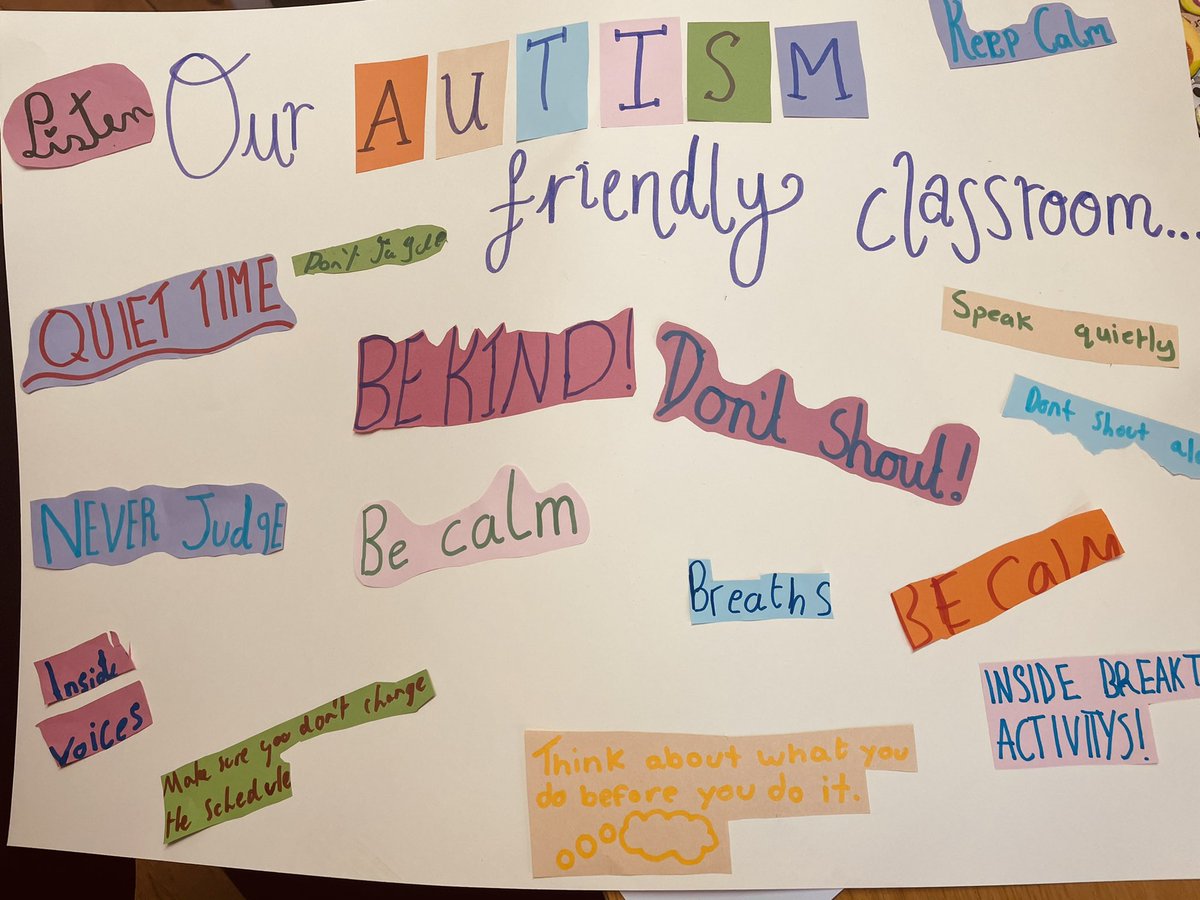 Keep Calm
Listen
Our AUTISM
friendly classroom...
Don't
QUIET TIME
BE KIND!
Don't Shout!
Speak quietly
Dont shout
NEVER Judge
Be calm
Breaths
BE Calm
Inside
voices
Make sure you don't change
the schedule
INSIDE
ACTIVITYS!
Think about what you
do before you do it.